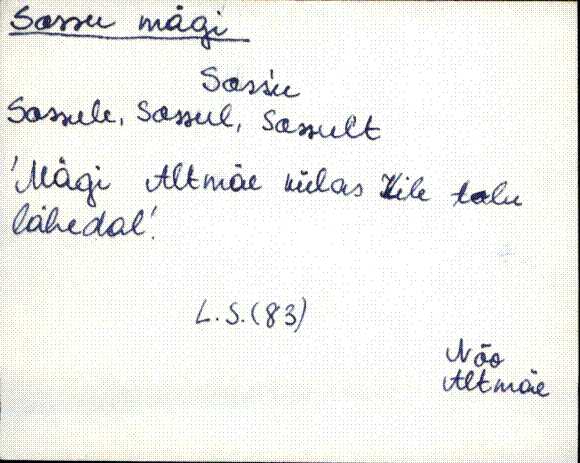 Sassu mägi
Sassu
Sassule, Sassul, Sassult
'Mägi Altmäe külas Kile talu
lähedal'.
L.S. (83)
Nõo
Altmäe